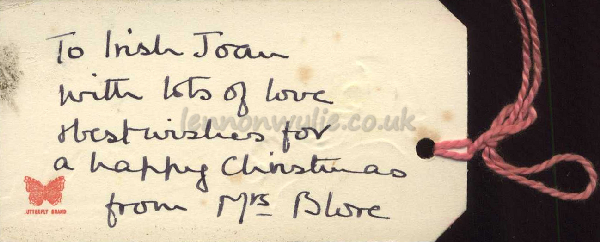 To Irish Joan
with lots of love
& best wishes for
a happy Christmas
from Mrs Blore
lennonwylie.co.uk
BUTTERFLY BRAND